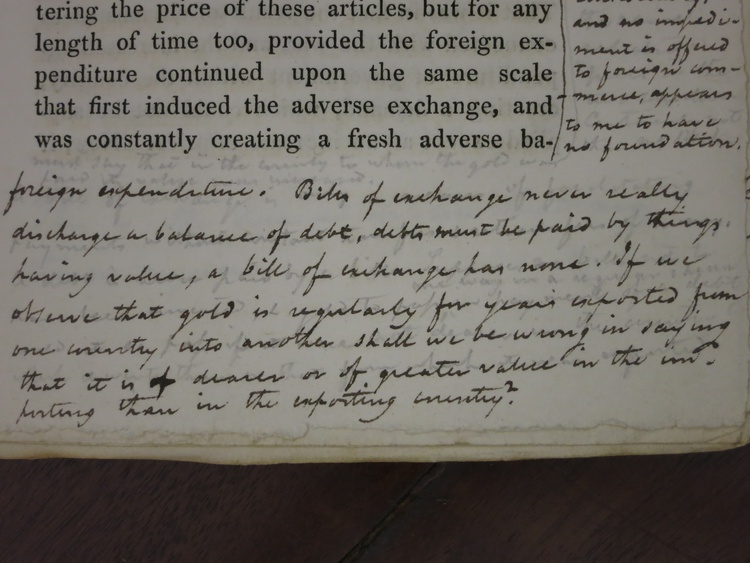 tering the price of these articles, but for any
length of time too, provided the foreign ex-
penditure continued upon the same scale
that first induced the adverse exchange, and
was constantly creating a fresh adverse ba-
and no impedi-
ment is offered
to foreign com-
merce, appears
to me to have
no foundation.
foreign expenditure. Bills of exchange never really
discharge a balance of debt, debts must be paid by things
having value, a bill of exchange has none. If we
observe that gold is regularly for years exported from
one country into another shall we be wrong in saying
that it is dearer or of greater value in the im-
porting than in the exporting country?